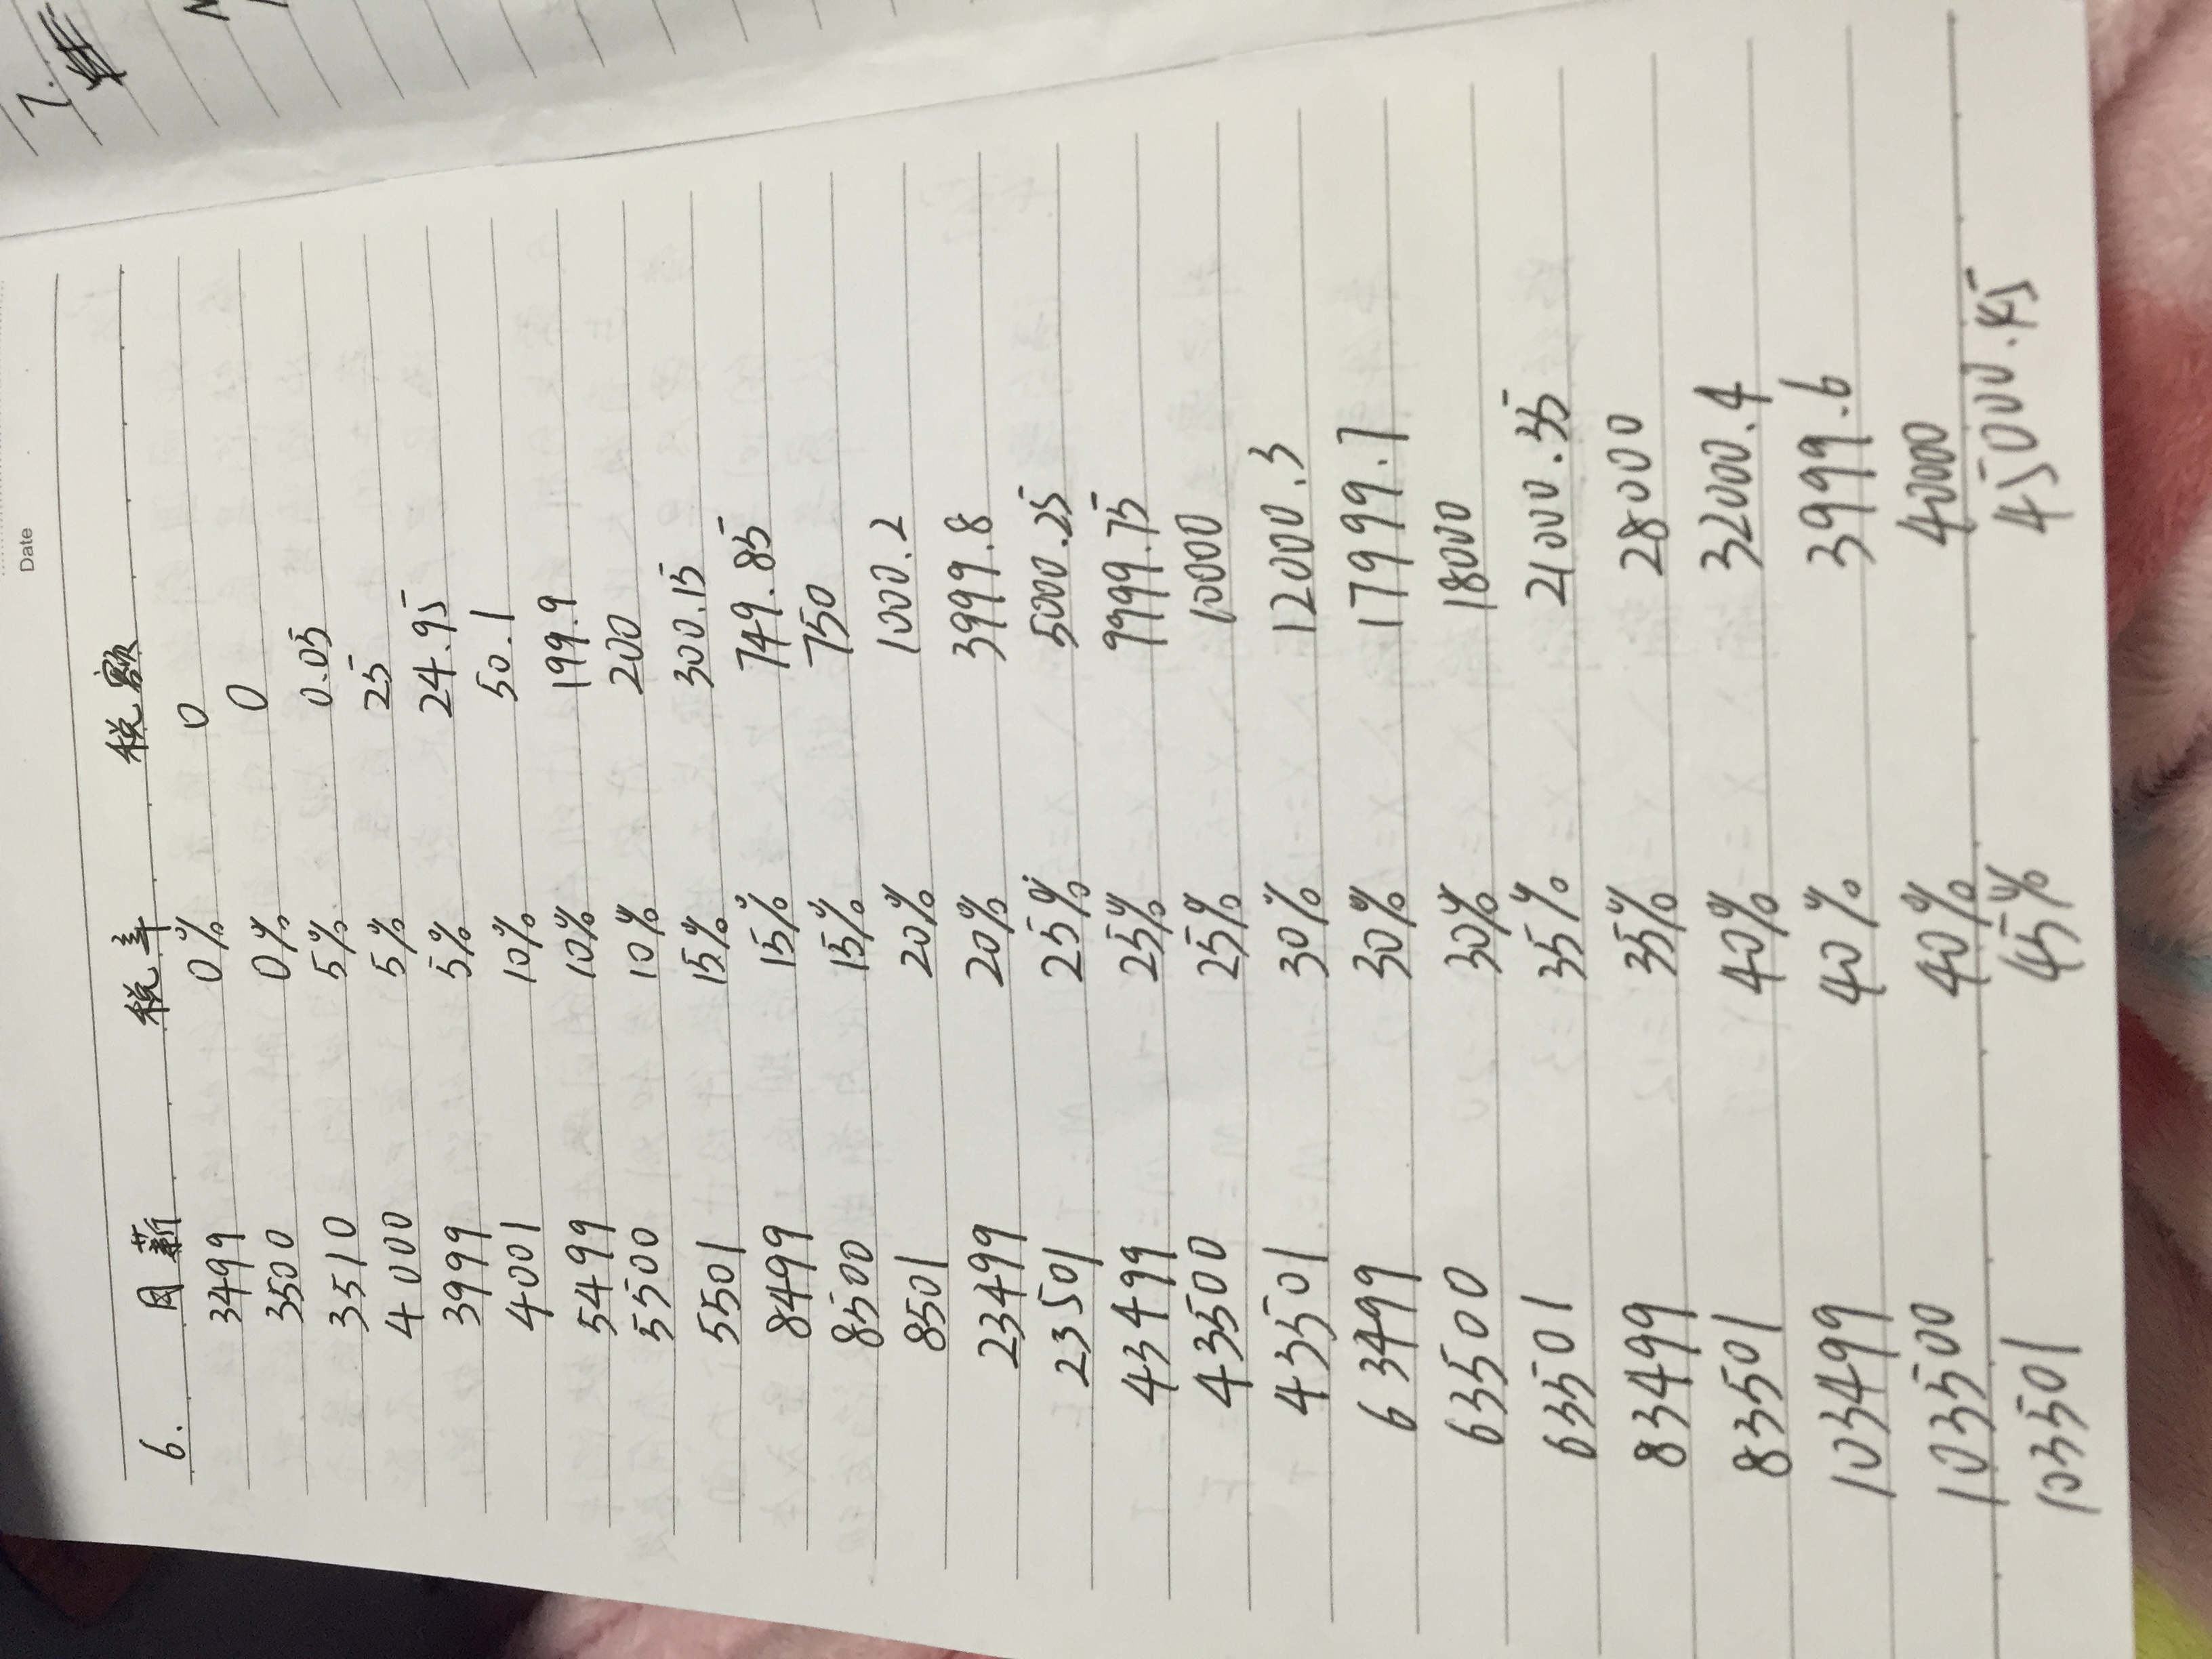 Date
6. 月薪 税率 税额
3499 0% 0
3500 0% 0
3510 5% 0.05
4000 5% 25
3999 5% 24.95
4001 10% 50.1
5499 10% 199.9
5500 10% 200
5501 15% 300.15
8499 15% 749.85
8500 15% 750
8501 20% 1000.2
23499 20% 3999.8
23501 25% 5000.25
43499 25% 9999.75
43500 25% 10000
43501 30% 12000.3
63499 30% 17999.7
63500 30% 18000
63501 35% 21000.35
83499 35% 28000
83501 40% 32000.4
103499 40% 3999.6
103500 40% 40000
103501 45% 45000.45
7.